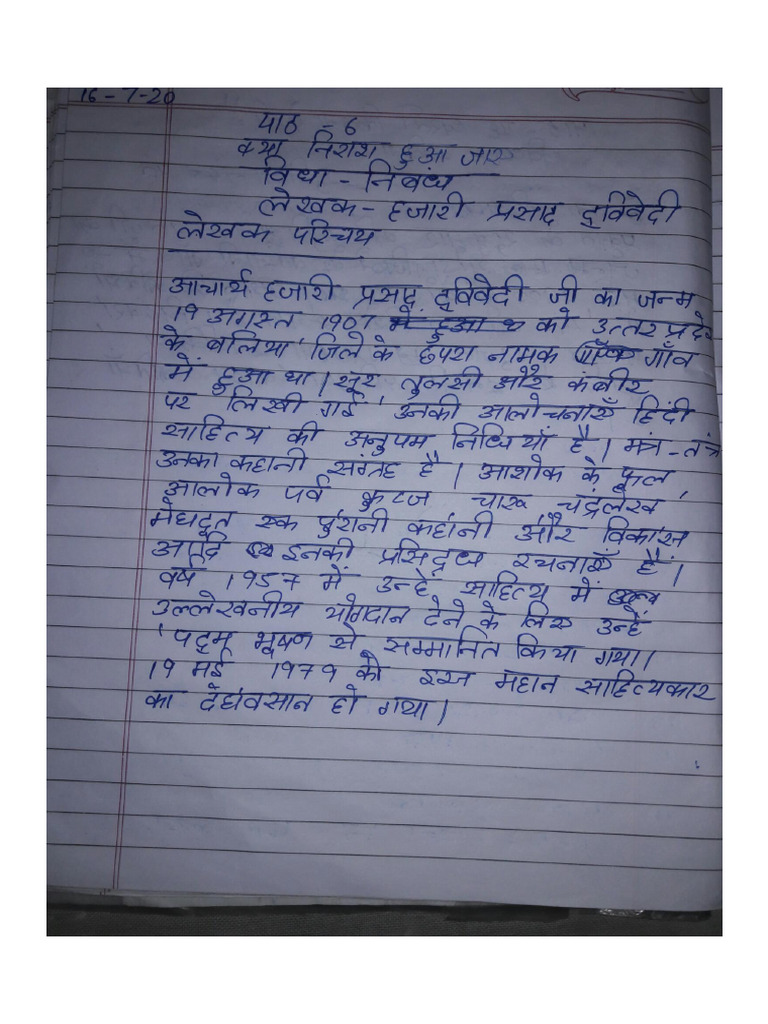 16-7-20
पाठ - 6
क्या निराश हुआ जाए
विधा - निबंध
लेखक - हजारी प्रसाद द्विवेदी
लेखक परिचय
आचार्य हजारी प्रसाद द्विवेदी जी का जन्म
19 अगस्त 1907 में हुआ था को उत्तर प्रदेश
के बलिया जिले के छपरा नामक गाँव
में हुआ था। सूर तुलसी और कबीर
पर लिखी गई उनकी आलोचनाएँ हिंदी
साहित्य की अनुपम निधियाँ है। मंत्र-तंत्र
उनका कहानी संग्रह है। आशोक के फूल,
आलोक पर्व कुटज चारू चंद्रलेख
मेघदूत एक पुरानी कहानी और विकास
आदि इनकी प्रसिद्ध रचनाएँ हैं।
वर्ष 1957 में उन्हें साहित्य में
उल्लेखनीय योगदान देने के लिए उन्हें
'पद्म भूषण से सम्मानित किया गया।
19 मई 1979 को इस महान साहित्यकार
का देहावसान हो गया।